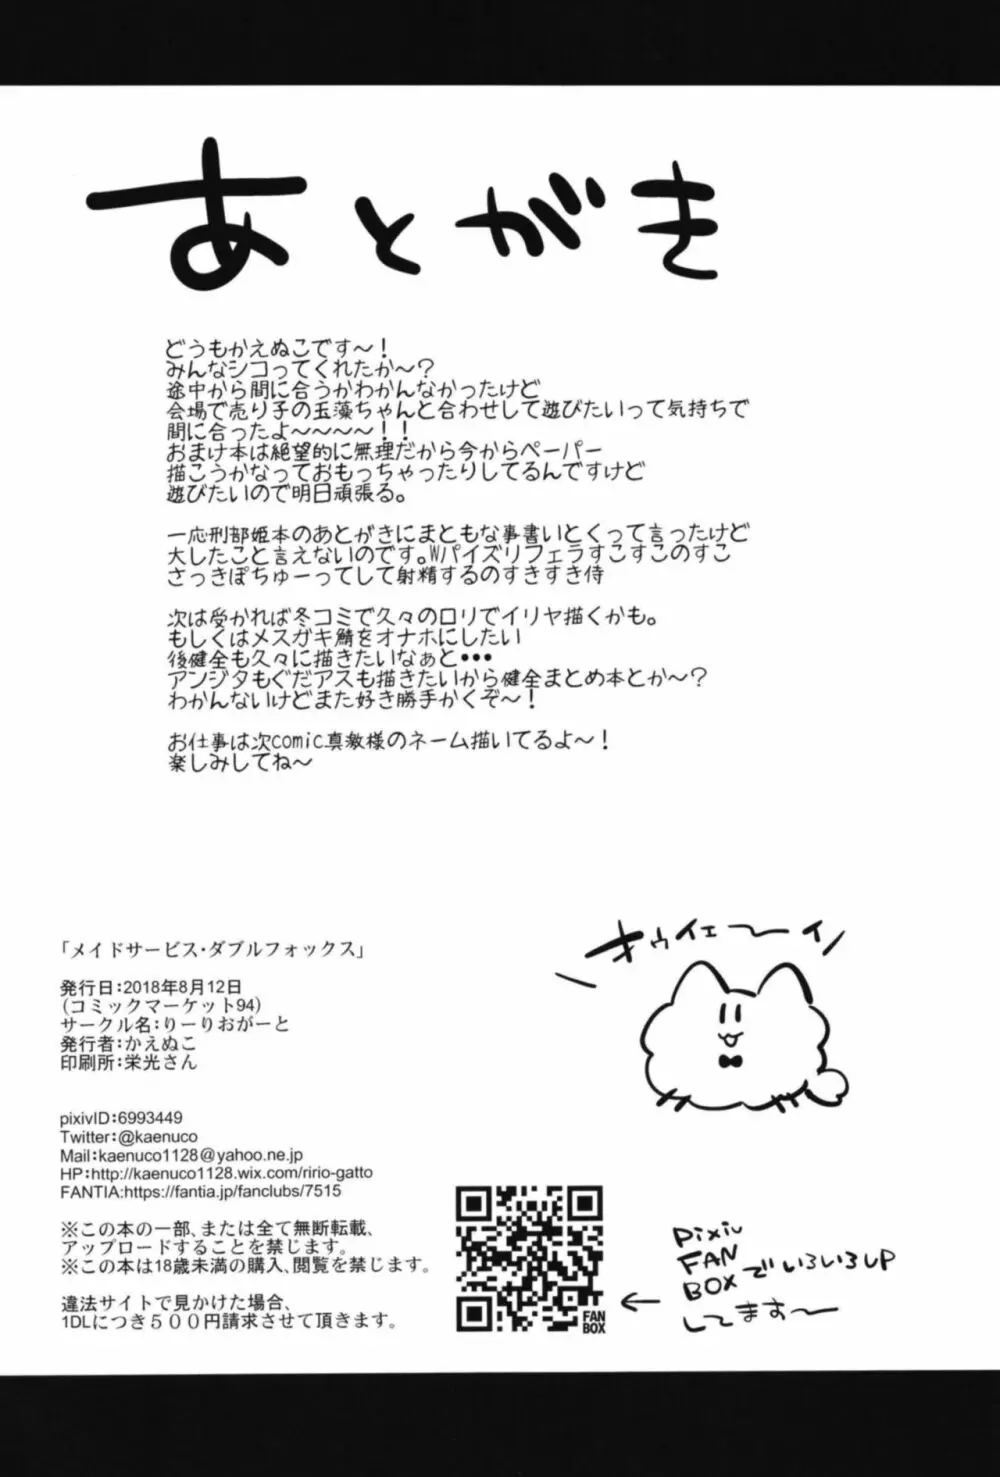 あとがき
どうもかえぬこです～！
みんなシコってくれたか～？
途中から間に合うかわかんなかったけど
会場で売り子の玉藻ちゃんと合わせして遊びたいって気持ちで
間に合ったよ～～～～！！
おまけ本は絶望的に無理だから今からペーパー
描こうかなっておもっちゃったりしてるんですけど
遊びたいので明日頑張る。
一応刑部姫本のあとがきにまともな事書いとくって言ったけど
大したこと言えないのです。Wパイズリフェラすこすこのすこ
さっきぽちゅーってして射精するのすきすき侍
後健全も久々に描きたいなぁと・・・
アンジタもぐだアスも描きたいから健全まとめ本とか～？
わかんないけどまた好き勝手かくぞ～！
お仕事は次comic真激様のネーム描いてるよ～！
楽しみしてね～
「メイドサービス・ダブルフォックス」
発行日：2018年8月12日
（コミックマーケット94）
サークル名：りーりおがーと
発行者：かえぬこ
印刷所：栄光さん
pixivID：6993449
Twitter：@kaenuco
Mail：kaenuco1128@yahoo.ne.jp
HP：http://kaenuco1128.wix.com/ririo-gatto
FANTIA:https://fantia.jp/fanclubs/7515
※この本の一部、または全て無断転載、
アップロードすることを禁じます。
※この本は18歳未満の購入、閲覧を禁じます。
違法サイトで見かけた場合、
1DLにつき５００円請求させて頂きます。
オゥイェ～イ
FAN
BOX
pixiv
FAN
BOXでいろいろUP
してます～